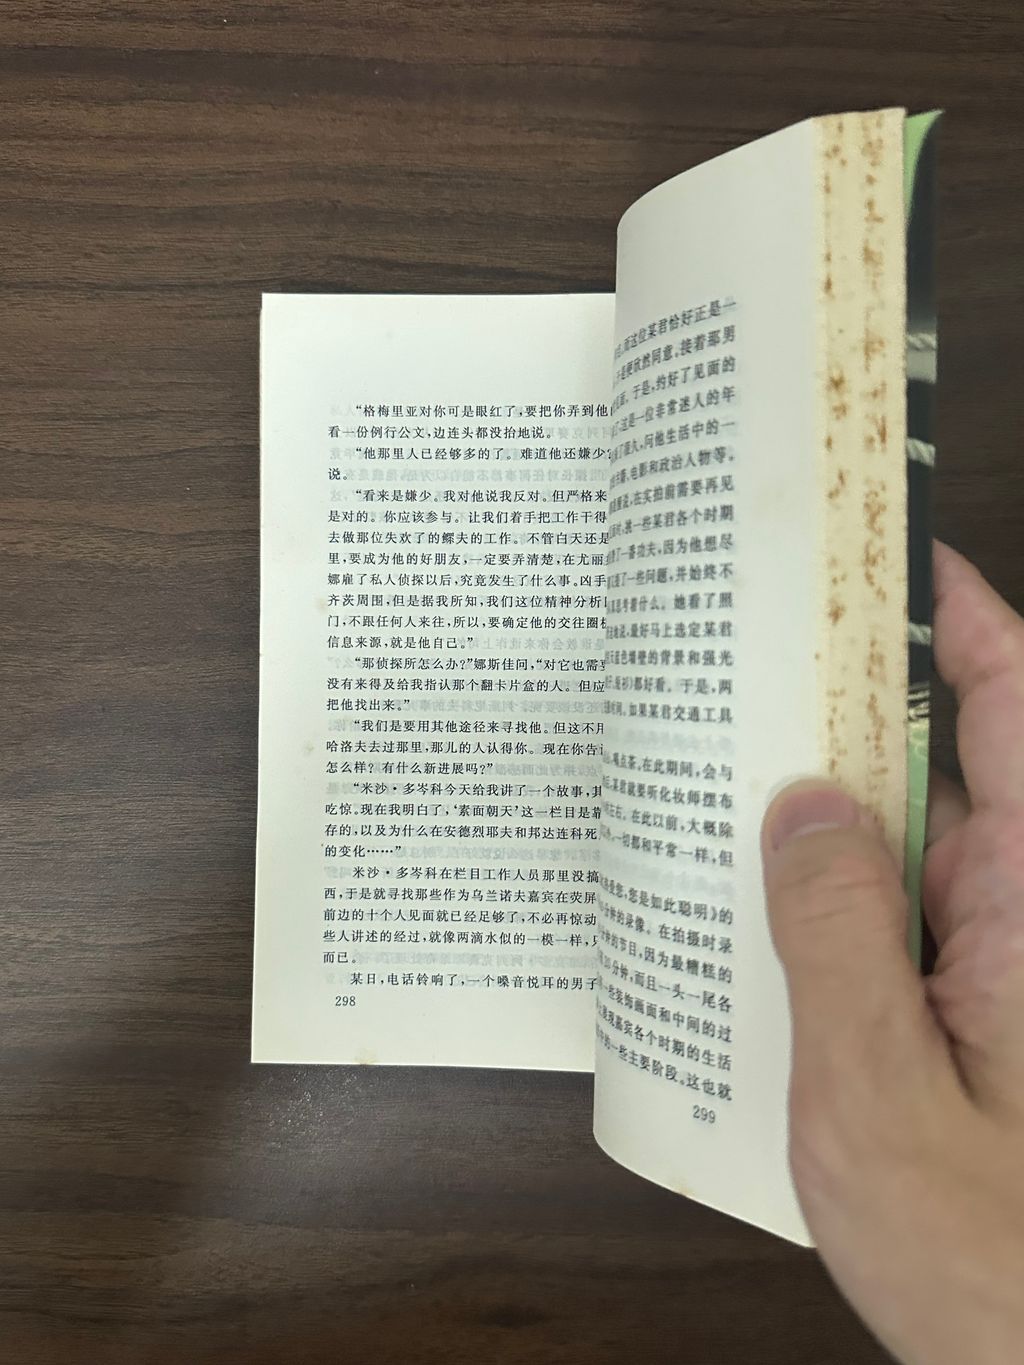 “格梅里亚对你可是眼红了，要把你弄到他
看一份例行公文，边连头都没抬地说。
“他那里人已经够多的了。难道他还嫌少？
说。
“看来是嫌少。我对他说我反对。但严格来
是对的。你应该参与。让我们着手把工作干得
去做那位失欢了的鳏夫的工作。不管白天还是
里，要成为他的好朋友，一定要弄清楚，在尤丽
娜雇了私人侦探以后，究竟发生了什么事。凶手
齐茨周围，但是据我所知，我们这位精神分析
门，不跟任何人来往，所以，要确定他的交往圈
信息来源，就是他自己。”
“那侦探所怎么办？”娜斯佳问，“对它也需
没有来得及给我指认那个翻卡片盒的人。但应
把他找出来。”
“我们是要用其他途径来寻找他。但这不用
哈洛夫去过那里，那儿的人认得你。现在你告
怎么样？有什么新进展吗？”
“米沙·多岑科今天给我讲了一个故事，其
吃惊。现在我明白了，‘素面朝天’这一栏目是靠
存的，以及为什么在安德烈耶夫和邦达连科死
的变化……”
米沙·多岑科在栏目工作人员那里没搞
西，于是就寻找那些作为乌兰诺夫嘉宾在荧屏
前边的十个人见面就已经足够了，不必再惊动
些人讲述的经过，就像两滴水似的一模一样，只
而已。
某日，电话铃响了，一个嗓音悦耳的男子
298
而这位某君恰好正是一
是便欣然同意。接着那男
见面。于是，约好了见面的
这是一位非常迷人的年
了很久，问他生活中的一
电影和政治人物等。
说，在实拍前需要再见
挑一些某君各个时期
了一番功夫，因为他想尽
了一些问题，并始终不
思考着什么。她看了照
地说，最好马上选定某君
蓝色墙壁的背景和强光
都好看。于是，两
时间。如果某君交通工具
喝点茶。在此期间，会与
某君就要听化妆师摆布
左右。在此以前，大概除
一切都和平常一样，但
您是如此聪明》的
分钟的录像。在拍摄时录
分钟的节目，因为最糟糕的
20分钟，而且一头一尾各
一些装饰画面和中间的过
展现嘉宾各个时期的生活
中的一些主要阶段。这也就
299